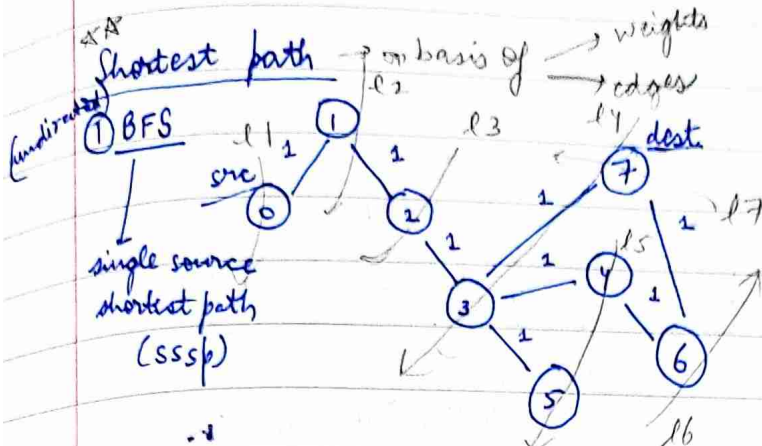 Shortest path → on basis of → weights
→ edges
(undirected)
① BFS
single source
shortest path
(SSSP)
src
dest.
l1
l2
l3
l4
l5
l6
l7
0
1
2
3
4
5
6
7
1
1
1
1
1
1
1
1